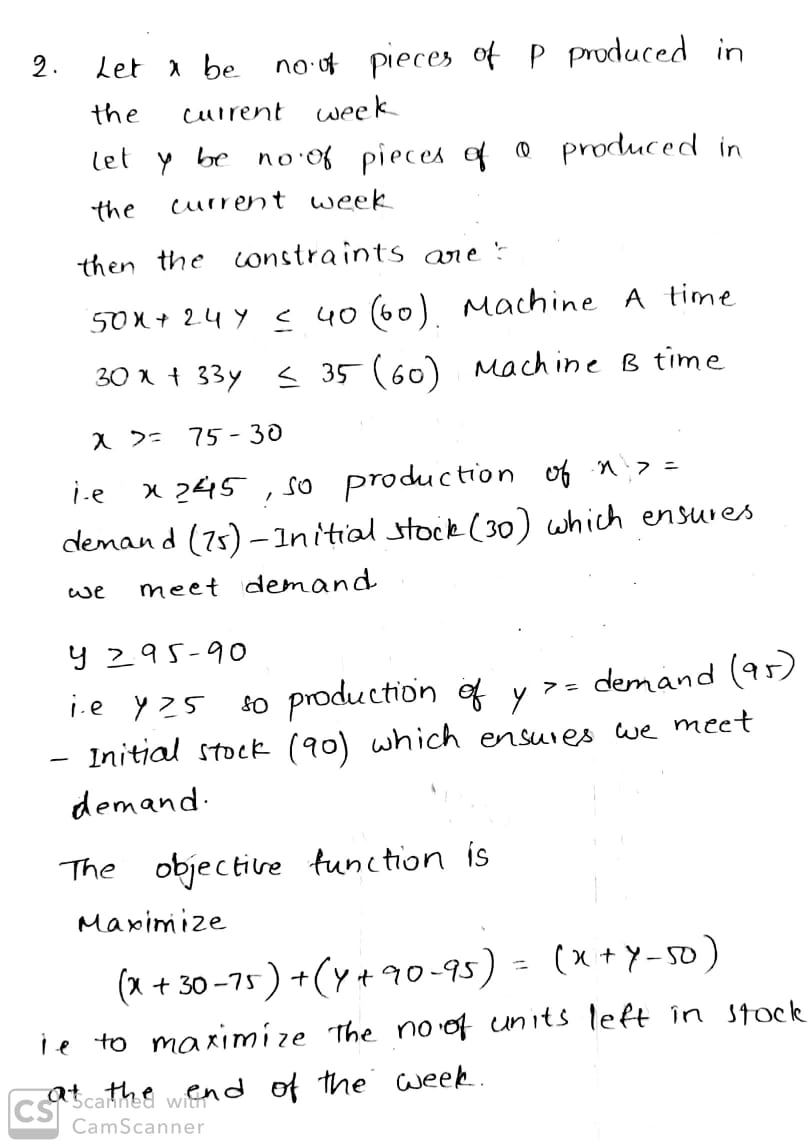 2. Let x be no.of pieces of P produced in
the current week
let y be no.of pieces of Q produced in
the current week
then the constraints are :-
50x + 24y ≤ 40 (60). Machine A time
30x + 33y ≤ 35 (60) Machine B time
x >= 75 - 30
i.e x ≥45 , so production of x >=
demand (75) - Initial stock (30) which ensures
we meet demand
y ≥ 95-90
i.e y ≥ 5 so production of y >= demand (95)
- Initial stock (90) which ensures we meet
demand.
The objective function is
Maximize
(x + 30 -75) + (y + 90 -95) = (x + y - 50)
ie to maximize the no.of units left in stock
at the end of the week.
CS Scanned with
CamScanner